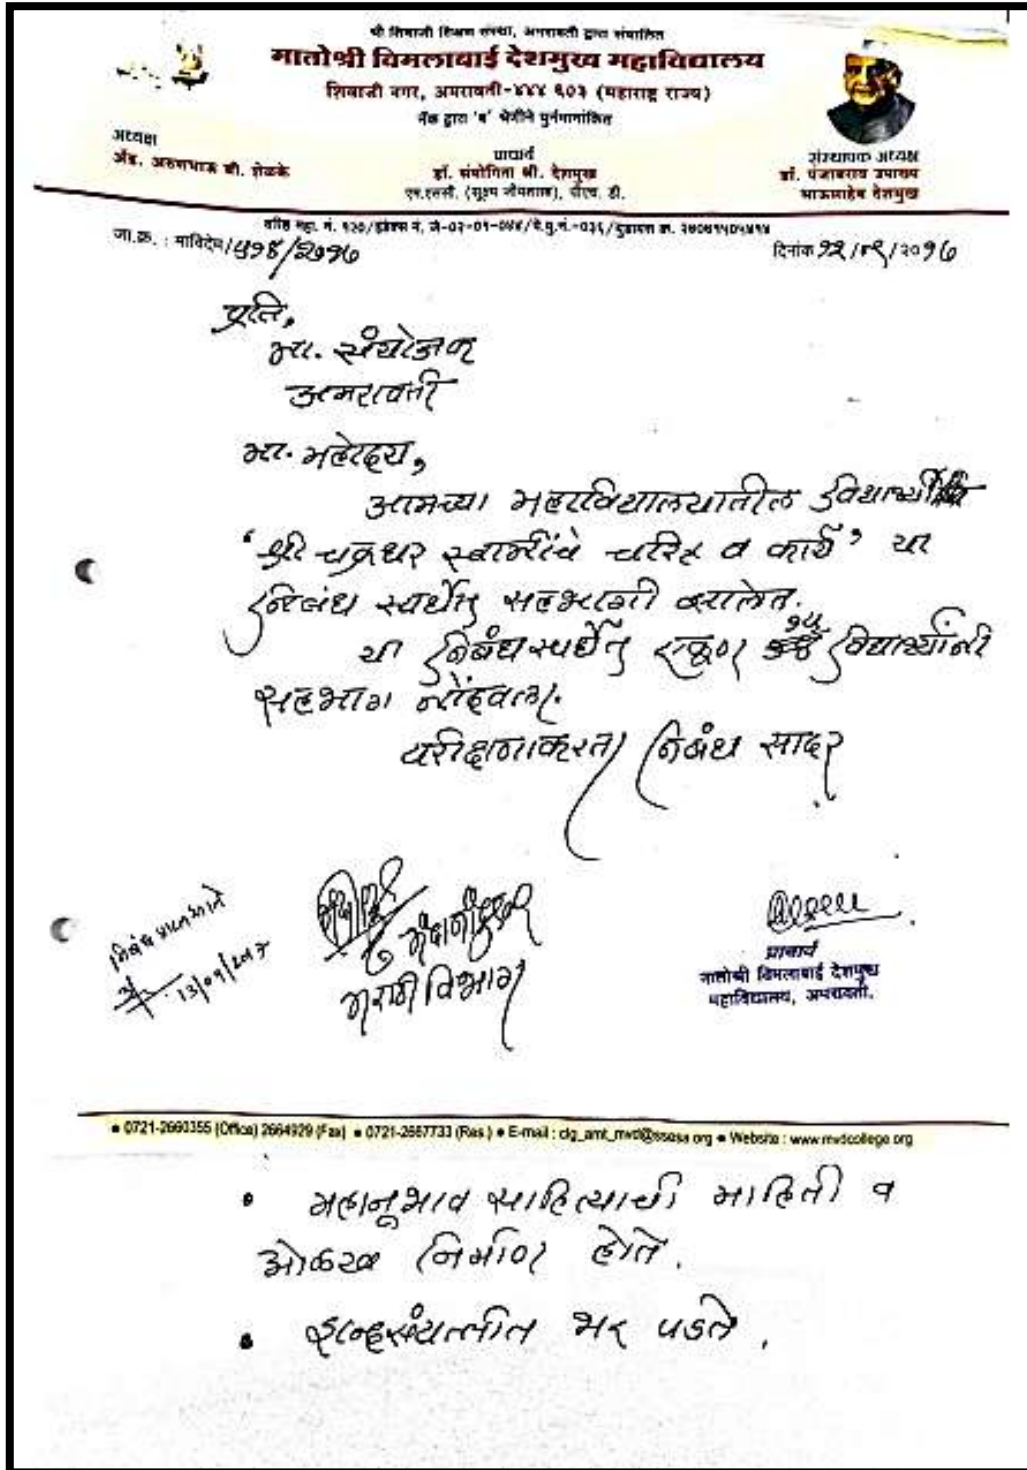 श्री शिवाजी शिक्षण संस्था, अमरावती द्वारा संचालित
मातोश्री विमलाबाई देशमुख महाविद्यालय
शिवाजी नगर, अमरावती-४४४ ६०३ (महाराष्ट्र राज्य)
नॅक द्वारा 'ब' श्रेणीने पुर्नमानांकित
अध्यक्ष
अॅड. अरुणभाऊ बी. शेळके
प्राचार्य
डॉ. संयोगिता श्री. देशमुख
एम.एससी. (सूक्ष्म जीवशास्त्र), पीएच. डी.
संस्थापक अध्यक्ष
डॉ. पंजाबराव उपाख्य
भाऊसाहेब देशमुख
जा.क्र. : माविदेम/५१४/२०१७
दिनांक १२/०९/२०१७
प्रति,
मा. संयोजक
अमरावती
मा. महोदय,
आमच्या महाविद्यालयातील विद्यार्थी
'श्री चक्रधर स्वामींचे चरित्र व कार्य' या
निबंध स्पर्धेत सहभागी झालेत.
या निबंध स्पर्धेत एकूण १५ विद्यार्थ्यांनी
सहभाग नोंदवला.
परीक्षणाकरता निबंध सादर
निबंध प्राप्त झाले
13/09/2017
मराठी विभाग
प्राचार्य
मातोश्री विमलाबाई देशमुख
महाविद्यालय, अमरावती.
● 0721-2660355 (Office) 2664929 (Fax) ● 0721-2667733 (Res.) ● E-mail : clg_amt_mvd@ssesa.org ● Website : www.mvdcollege.org
• महानूभाव साहित्याची माहिती व
ओळख निर्माण होते.
• शब्दसंपत्तीत भर पडते.